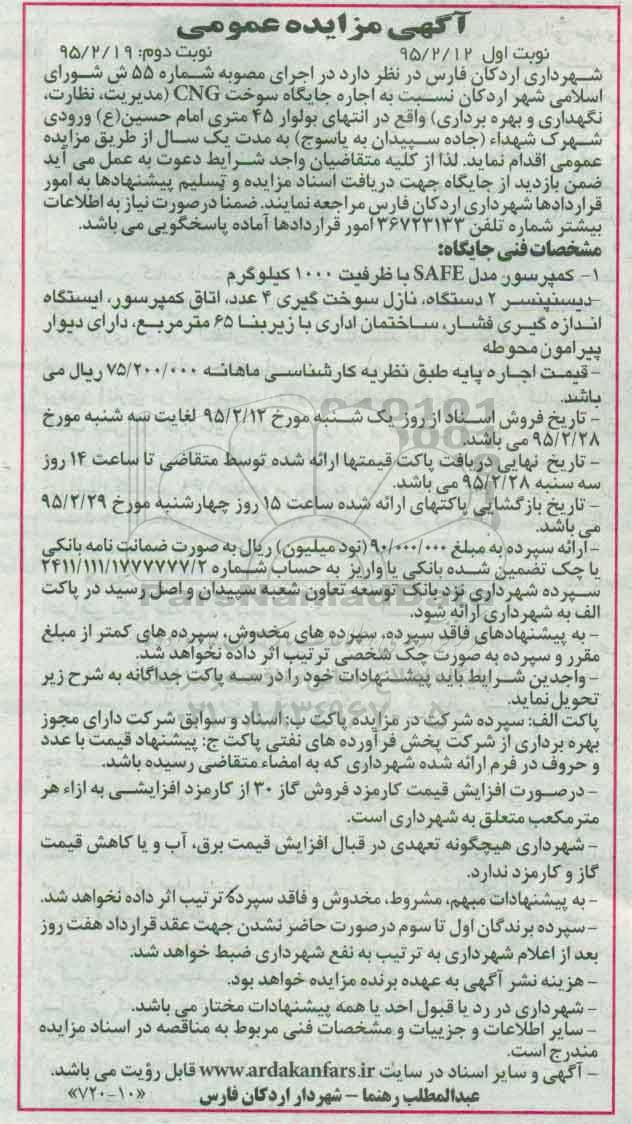 آگهی مزایده عمومی
نوبت اول ۹۵/۲/۱۲ نوبت دوم: ۹۵/۲/۱۹
شهرداری اردکان فارس در نظر دارد در اجرای مصوبه شماره ۵۵ ش شورای
اسلامی شهر اردکان نسبت به اجاره جایگاه سوخت CNG (مدیریت، نظارت،
نگهداری و بهره برداری) واقع در انتهای بولوار ۴۵ متری امام حسین(ع) ورودی
شهرک شهداء (جاده سپیدان به یاسوج) به مدت یک سال از طریق مزایده
عمومی اقدام نماید. لذا از کلیه متقاضیان واجد شرایط دعوت به عمل می آید
ضمن بازدید از جایگاه جهت دریافت اسناد مزایده و تسلیم پیشنهادها به امور
قراردادها شهرداری اردکان فارس مراجعه نمایند. ضمنا درصورت نیاز به اطلاعات
بیشتر شماره تلفن ۳۶۷۲۳۱۳۳ امور قراردادها آماده پاسخگویی می باشد.
مشخصات فنی جایگاه:
۱- کمپرسور مدل SAFE با ظرفیت ۱۰۰۰ کیلوگرم
-دیسنپنسر ۲ دستگاه، نازل سوخت گیری ۴ عدد، اتاق کمپرسور، ایستگاه
اندازه گیری فشار، ساختمان اداری با زیربنا ۶۵ مترمربع، دارای دیوار
پیرامون محوطه
- قیمت اجاره پایه طبق نظریه کارشناسی ماهانه ۷۵/۲۰۰/۰۰۰ ریال می
باشد.
- تاریخ فروش اسناد از روز یک شنبه مورخ ۹۵/۲/۱۲ لغایت سه شنبه مورخ
۹۵/۲/۲۸ می باشد.
- تاریخ نهایی دریافت پاکت قیمتها ارائه شده توسط متقاضی تا ساعت ۱۴ روز
سه سنبه ۹۵/۲/۲۸ می باشد.
- تاریخ بازگشایی پاکتهای ارائه شده ساعت ۱۵ روز چهارشنبه مورخ ۹۵/۲/۲۹
می باشد.
- ارائه سپرده به مبلغ ۹۰/۰۰۰/۰۰۰ (نود میلیون) ریال به صورت ضمانت نامه بانکی
یا چک تضمین شده بانکی یا واریز به حساب شماره ۲۴۱۱/۱۱۱/۱۷۷۷۷۷۷/۲
سپرده شهرداری نزد بانک توسعه تعاون شعبه سپیدان و اصل رسید در پاکت
الف به شهرداری ارائه شود.
- به پیشنهادهای فاقد سپرده، سپرده های مخدوش، سپرده های کمتر از مبلغ
مقرر و سپرده به صورت چک شخصی ترتیب اثر داده نخواهد شد.
- واجدین شرایط باید پیشنهادات خود را در سه پاکت جداگانه به شرح زیر
تحویل نماید.
پاکت الف: سپرده شرکت در مزایده پاکت ب: اسناد و سوابق شرکت دارای مجوز
بهره برداری از شرکت پخش فرآورده های نفتی پاکت ج: پیشنهاد قیمت با عدد
و حروف در فرم ارائه شده شهرداری که به امضاء متقاضی رسیده باشد.
- درصورت افزایش قیمت کارمزد فروش گاز ۳۰ از کارمزد افزایشی به ازاء هر
مترمکعب متعلق به شهرداری است.
- شهرداری هیچگونه تعهدی در قبال افزایش قیمت برق، آب و یا کاهش قیمت
گاز و کارمزد ندارد.
- به پیشنهادات مبهم، مشروط، مخدوش و فاقد سپرده ترتیب اثر داده نخواهد شد.
-سپرده برندگان اول تا سوم درصورت حاضر نشدن جهت عقد قرارداد هفت روز
بعد از اعلام شهرداری به ترتیب به نفع شهرداری ضبط خواهد شد.
- هزینه نشر آگهی به عهده برنده مزایده خواهد بود.
- شهرداری در رد یا قبول احد یا همه پیشنهادات مختار می باشد.
- سایر اطلاعات و جزییات و مشخصات فنی مربوط به مناقصه در اسناد مزایده
مندرج است.
- آگهی و سایر اسناد در سایت www.ardakanfars.ir قابل رؤیت می باشد.
عبدالمطلب رهنما - شهردار اردکان فارس «۷۲۰-۱۰»